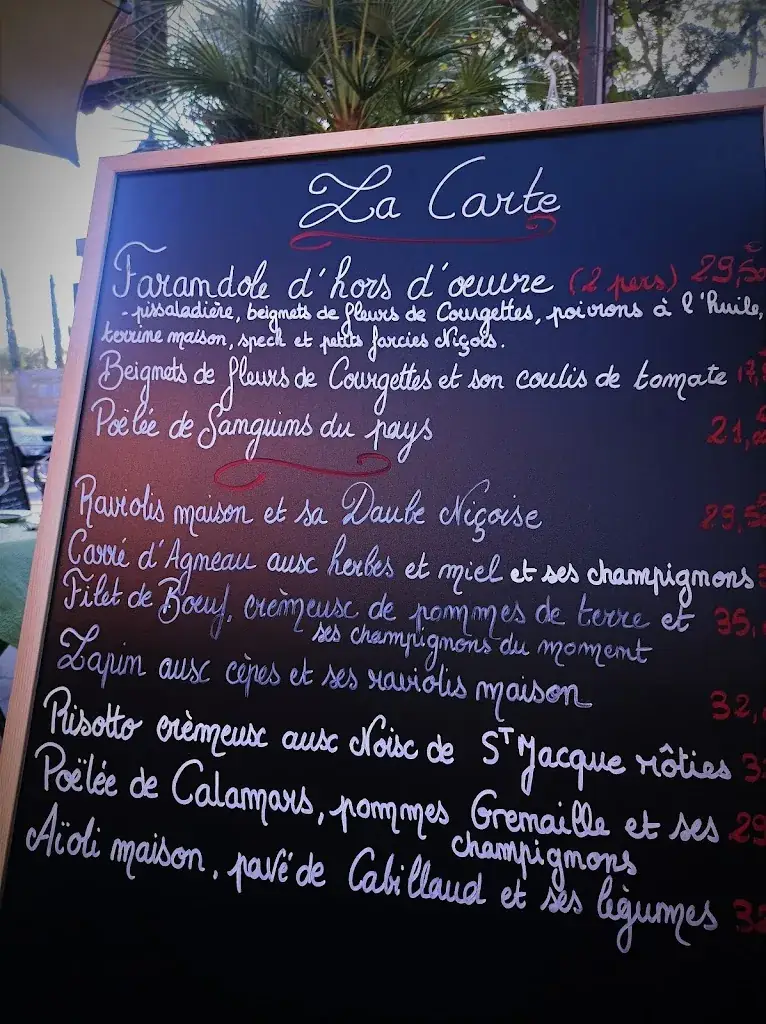 La Carte
Farandole d'hors d'oeuvre (2 pers) 29,50 €
- pissaladière, beignets de fleurs de Courgettes, poivrons à l'huile,
terrine maison, speck et petits farcies Niçois.
Beignets de fleurs de Courgettes et son coulis de tomate 17,
Poëlée de Sanguins du pays 21,00
Raviolis maison et sa Daube Niçoise 29,50
Carré d'Agneau aux herbes et miel et ses champignons
Filet de Boeuf, crèmeux de pommes de terre et 35,
ses champignons du moment
Lapin aux cèpes et ses raviolis maison 32,
Risotto crèmeux aux Noix de St Jacque rôties 3
Poëlée de Calamars, pommes Grenaille et ses 29
champignons
Aïoli maison, pavé de Cabillaud et ses légumes 32